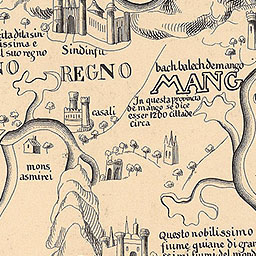 cita dila sin
issima e
l suo regno
Sindinfu
NO REGNO
bach balech de mango
MANG
In questa provincia
de mango se dice
esser 1200 cittade
circa
casali
mons
asmirei
Questo nobilissimo
fiume quiane di gran